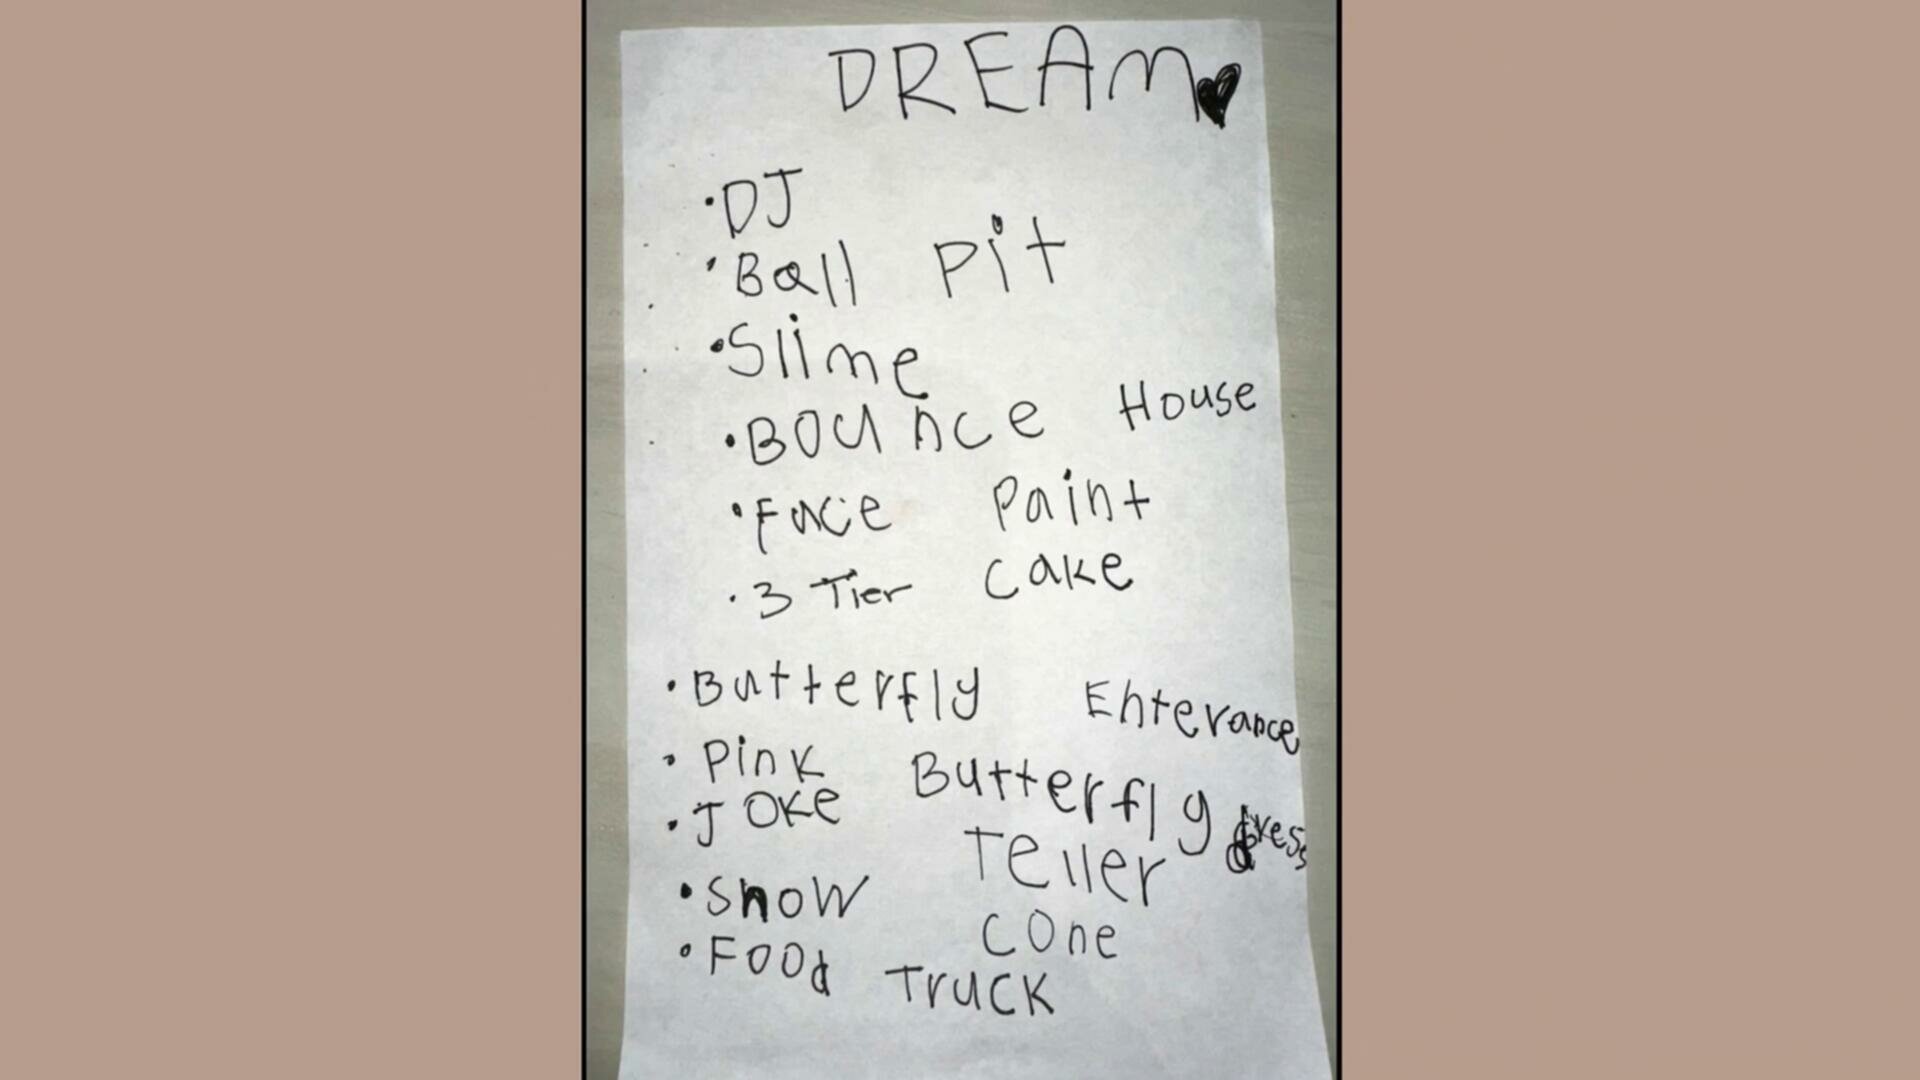 DREAM
• DJ
• Ball Pit
• Slime
• Bounce House
• Face Paint
• 3 Tier Cake
• Butterfly Enterance
• Pink Butterfly dress
• Joke Teller
• Snow Cone
• Food Truck